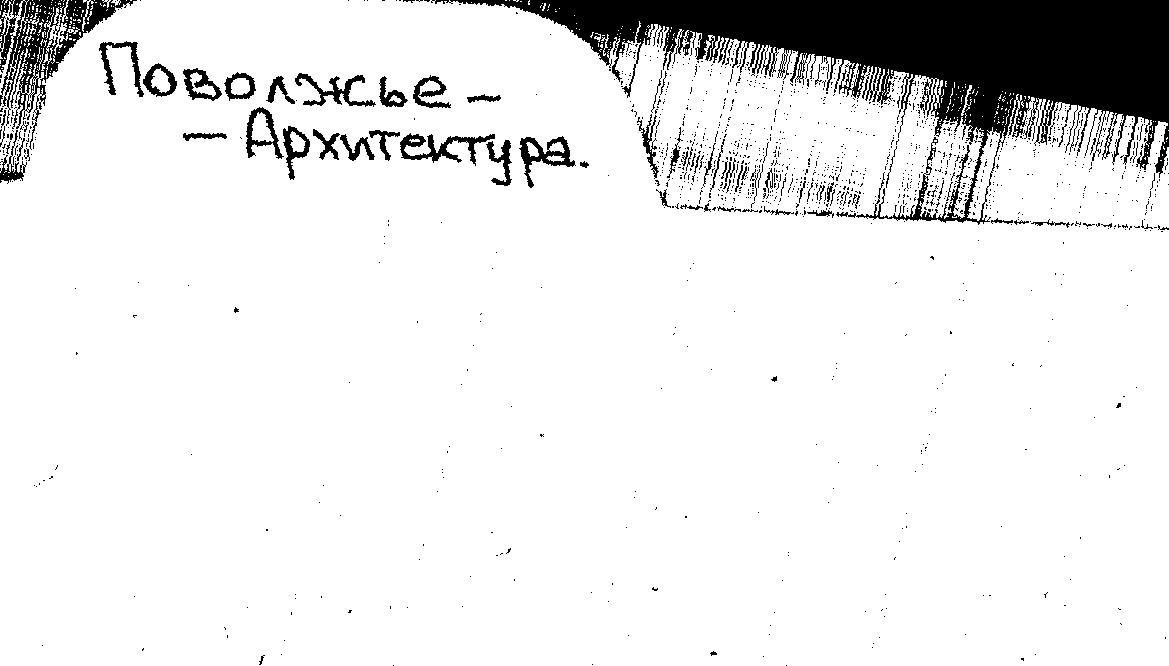 Поволжье -
- Архитектура.